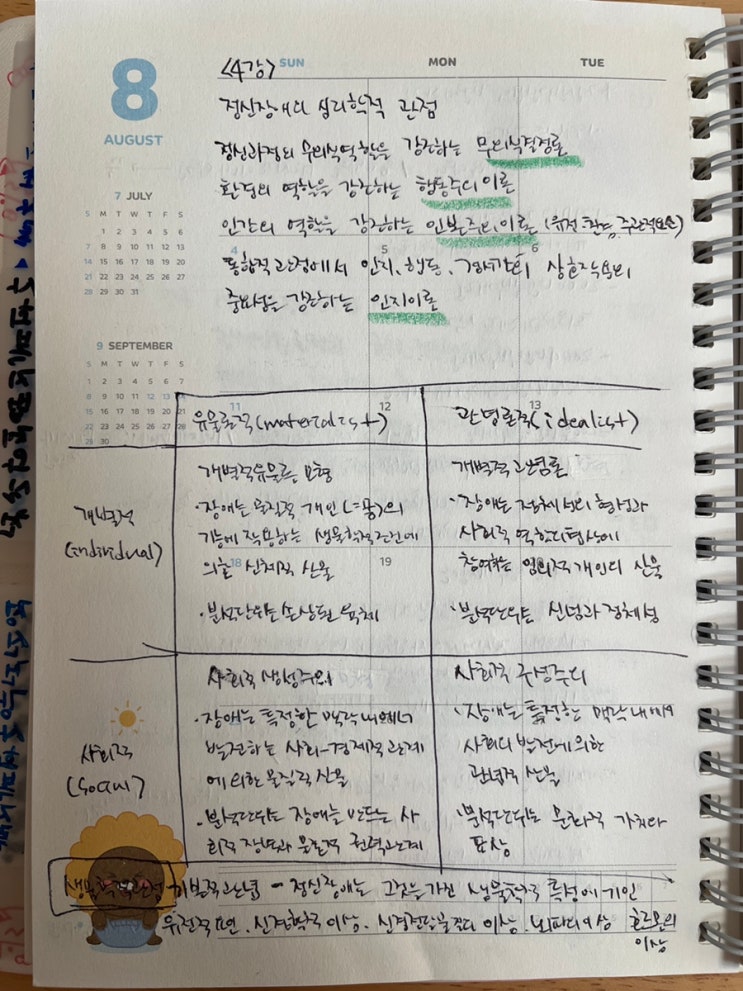 8
AUGUST
SUN MON TUE
<4강>
정신장애의 심리학적 관점
정신과정의 무의식역할을 강조하는 무의식결정론
환경의 역할을 강조하는 행동주의 이론
인간의 역할을 강조하는 인본주의 이론 (유전, 환경, 주관적요소)
통합적 관점에서 인지, 행동, 상호작용의
중요성을 강조하는 인지이론
7 JULY
S M T W T F S
1 2 3 4 5 6
7 8 9 10 11 12 13
14 15 16 17 18 19 20
21 22 23 24 25 26 27
28 29 30 31
4 5 6
9 SEPTEMBER
S M T W T F S
1 2 3 4 5 6 7
8 9 10 11 12 13 14
15 16 17 18 19 20 21
22 23 24 25 26 27 28
29 30
11 12 13
유물론적(materialist) 관념론적(idealist)
개별적
(individual)
개별적유물론 모형
·장애는 물질적 개인(=몸)의
기능에 작용하는 생물학적조건에
의한 신체적 산물
·분석단위는 손상된 육체
18 19
개별적 관념론
·장애는 정체성의 형성과
사회적 역할의 협상에
참여하는 임의적 개인의 산물
·분석단위는 신념과 정체성
사회적
(social)
사회적 생성주의
·장애는 특정한 맥락 내에서
발전하는 사회-경제적 관계
에 의한 물질적 산물
·분석단위는 장애를 만드는 사
회적 장벽과 물질적 권력관계
사회적 구성주의
·장애는 특정한 맥락 내에서
사회의 발전에 의한
관념적 산물
·분석단위는 문화적 가치와
표상
생물학적관점 기본적관념 - 정신장애는 그것을 가진 생물학적 특성에 기인
유전적 요인, 신경학적 이상, 신경전달물질의 이상, 뇌파의 이상 호르몬의
이상